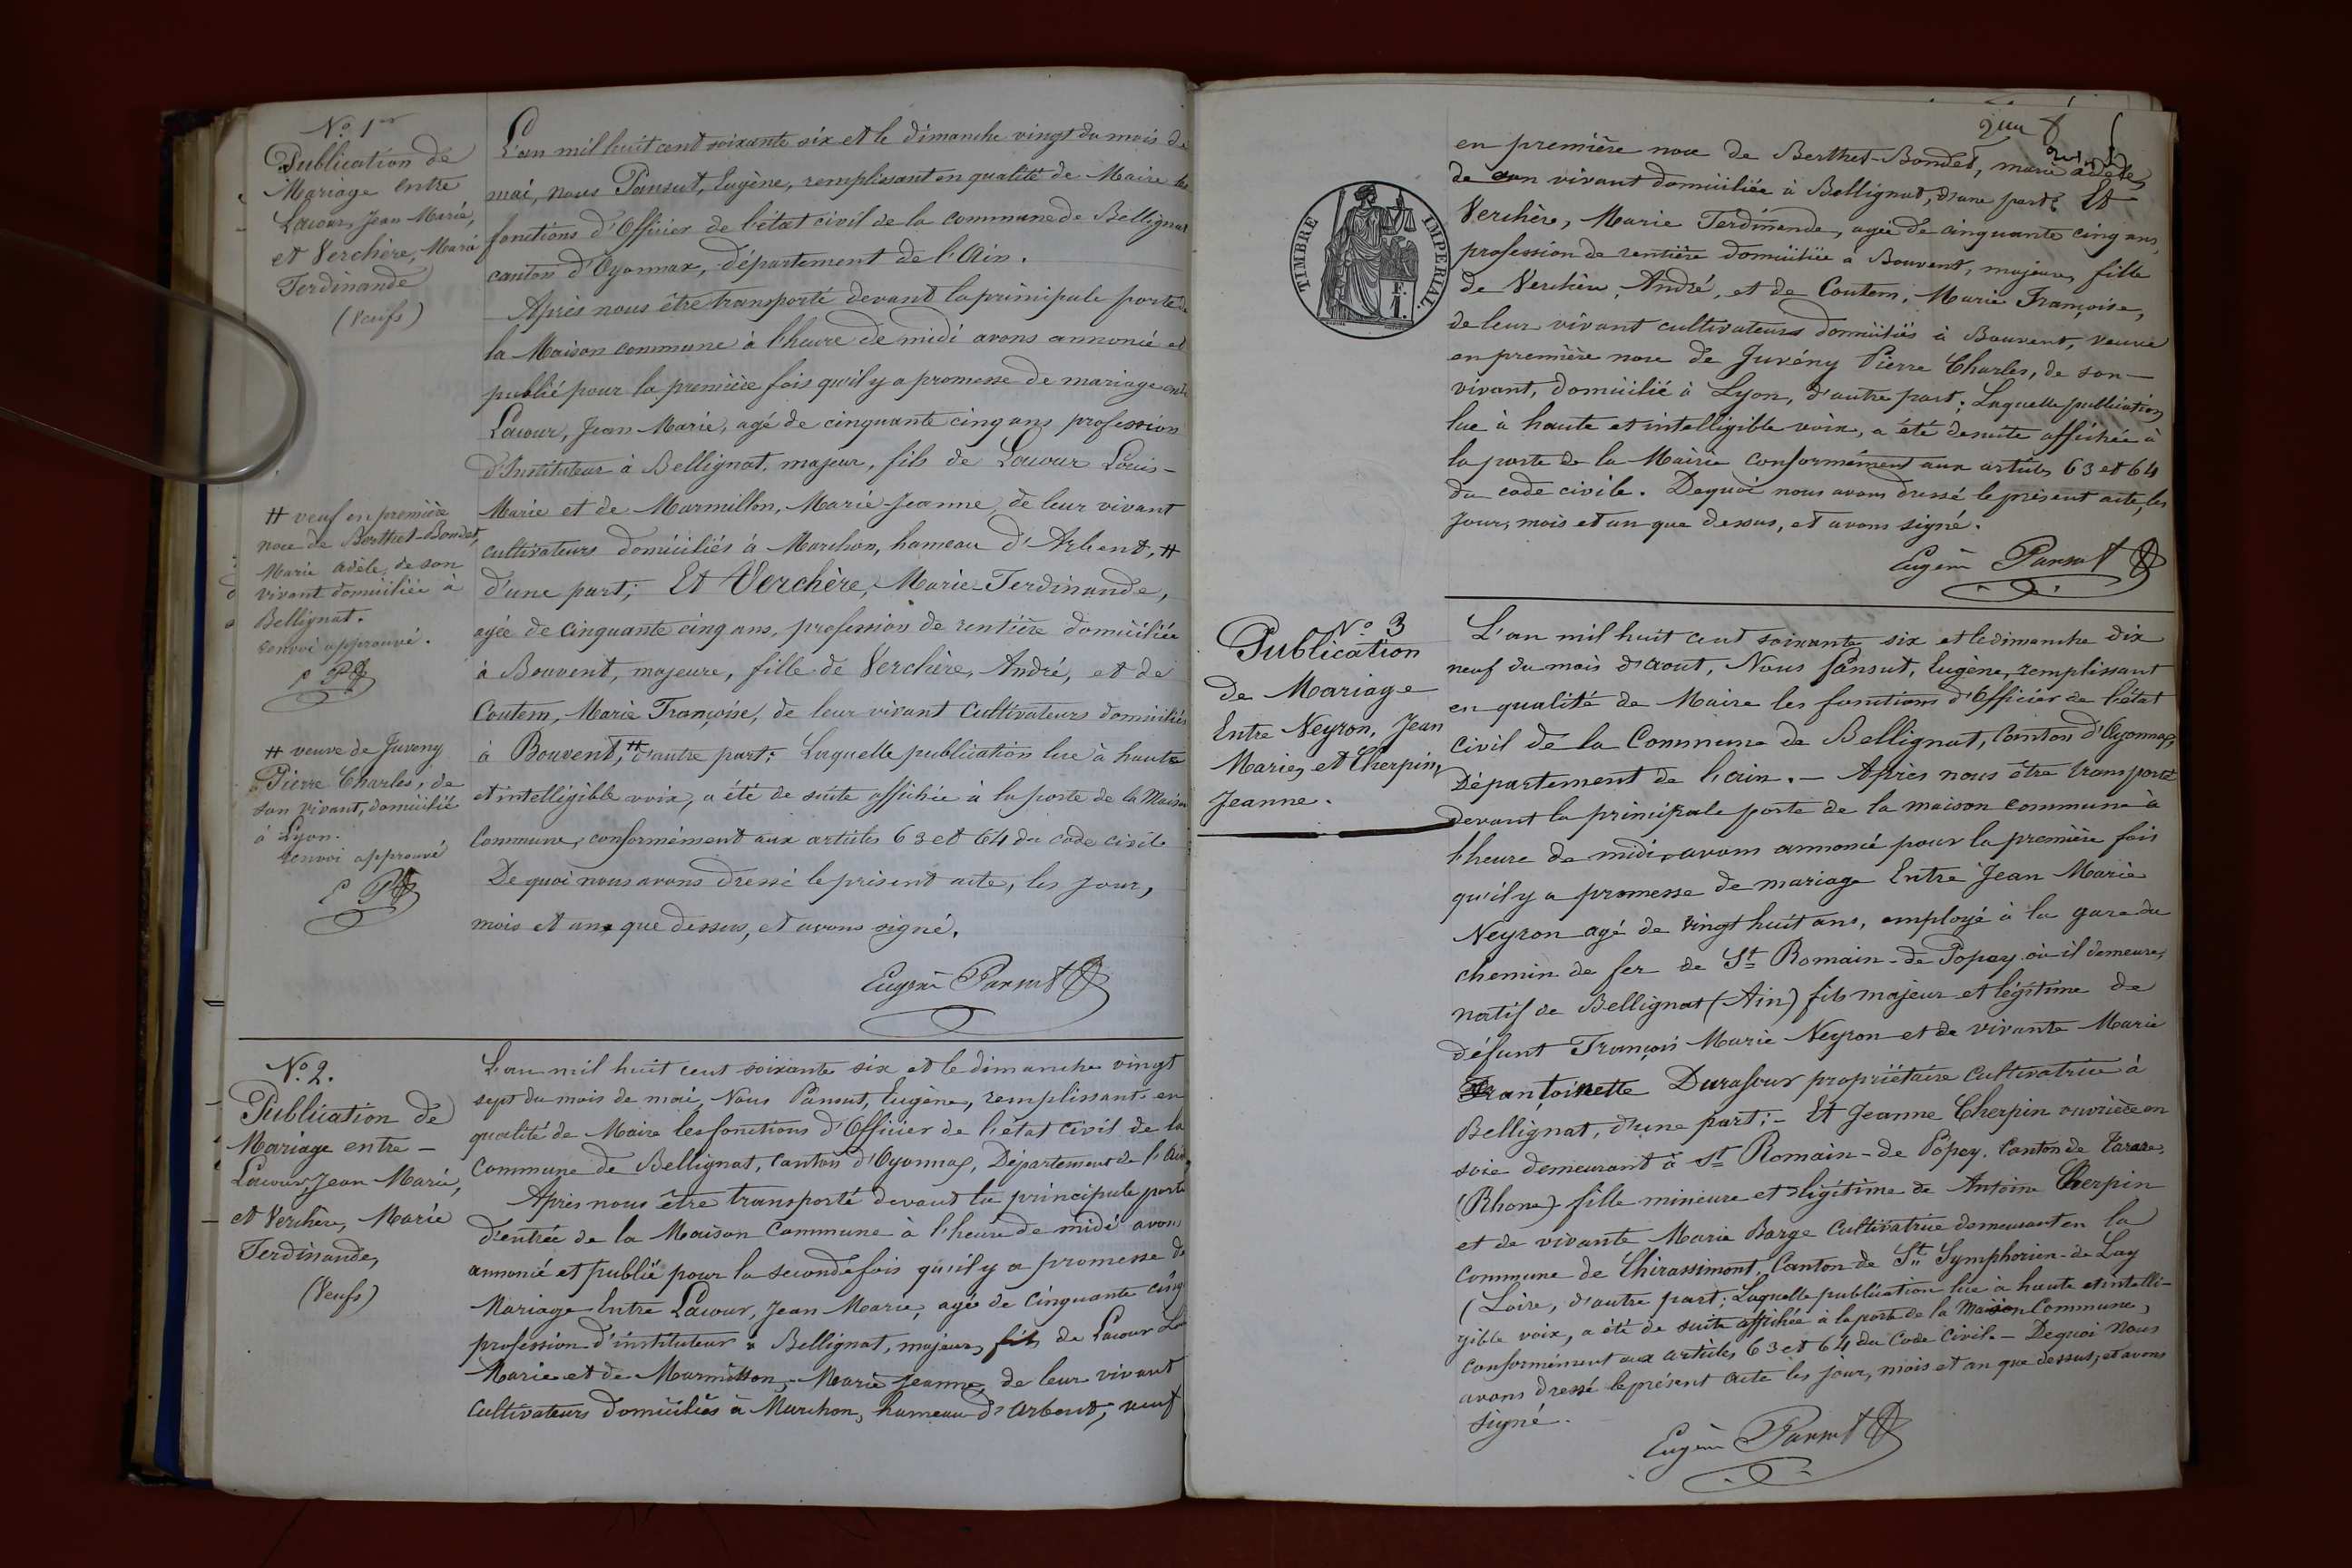 No. 1er
Publication de
Mariage entre
Lacour, Jean Marie,
et Verchère, Marie
Ferdinande
(Veufs)
L'an mil huit cent soixante six et le dimanche vingt du mois de
mai, nous Pansut, Eugène, remplissant en qualité de Maire les
fonctions d'Officier de l'état civil de la commune de Bellignat
canton d'Oyonnax, département de l'Ain.
Après nous être transporté devant la principale porte de
la Maison commune à l'heure de midi avons annoncé et
publié pour la première fois qu'il y a promesse de mariage entre
Lacour, Jean Marie, agé de cinquante cinq ans profession
d'Instituteur à Bellignat, majeur, fils de Lacour Louis-
Marie et de Marmillon, Marie Jeanne, de leur vivant
cultivateurs domiciliés à Marchon, hameau d'Arbent, #
d'une part; Et Verchère, Marie-Ferdinande,
agée de cinquante cinq ans, profession de rentière domiciliée
à Bouvent, majeure, fille de Verchère, André, et de
Coutem, Marie Françoise, de leur vivant cultivateurs domiciliés
à Bouvent, # d'autre part; Laquelle publication lue à haute
et intelligible voix, a été de suite affichée à la porte de la Maison
Commune, conformément aux articles 63 et 64 du code civil.
De quoi nous avons dressé le présent acte, les jour,
mois et an que dessus, et avons signé.
Eugène Pansut
# veuf en première
noce de Berthet-Bondet,
Marie adèle, de son
vivant domiciliée à
Bellignat.
renvoi approuvé.
E P
# veuve de Juveny
Pierre Charles, de
son vivant, domicilié
à Lyon.
renvoi approuvé
E P
No. 2.
Publication de
Mariage entre -
Lacour, Jean Marie,
et Verchère, Marie
Ferdinande,
(Veufs)
L'an mil huit cent soixante six et le dimanche vingt
sept du mois de mai, Nous Pansut, Eugène, remplissant en
qualité de Maire les fonctions d'Officier de l'état civil de la
commune de Bellignat, canton d'Oyonnax, Département de l'Ain
Après nous être transporté devant la principale porte
d'entrée de la Maison Commune à l'heure de midi avons
annoncé et publié pour la seconde fois qu'il y a promesse de
Mariage Entre Lacour, Jean Marie, agé de cinquante cinq
profession d'instituteur à Bellignat, majeur, fils de Lacour
Marie et de Marmillon, Marie Jeanne, de leur vivant
cultivateurs domiciliés à Marchon, hameau d'Arbent, veuf
TIMBRE IMPERIAL.
en première noce de Berthet-Bondet, marie adèle,
de son vivant domiciliée à Bellignat, d'une part; Et
Verchère, Marie Ferdinande, agée de cinquante cinq ans,
profession de rentière domiciliée à Bouvent, majeure, fille
de Verchère, André, et de Coutem, Marie Françoise,
de leur vivant cultivateurs domiciliés à Bouvent, veuve
en première noce de Juvény Pierre Charles, de son -
vivant, domicilié à Lyon, d'autre part; Laquelle publication
lue à haute et intelligible voix, a été desuite affichée à
la porte de la Mairie conformément aux articles 63 et 64
du code civile. Dequoi nous avons dressé le présent acte, les
jour, mois et an que dessus, et avons signé.
Eugène Pansut
No 3
Publication
de Mariage
Entre Neyron, Jean
Marie, et Cherpin,
Jeanne.
L'an mil huit cent soixante six et le dimanche dix
neuf du mois d'aout, Nous Pansut, Eugène, remplissant
en qualité de Maire les fonctions d'Officier de l'état
civil de la Commune de Bellignat, Canton d'Oyonnax,
Département de l'ain. - Après nous être transporté
devant la principale porte de la maison commune à
l'heure de midi, avons annoncé pour la première fois
qu'il y a promesse de mariage Entre Jean Marie
Neyron agé de vingt huit ans, employé à la gare du
chemin de fer de St Romain-de Popey où il demeure,
natif de Bellignat (Ain) fils majeur et légitime de
défunt François Marie Neyron et de vivante Marie
antoinette Durafour propriétaire cultivatrice à
Bellignat, d'une part; - Et Jeanne Cherpin ouvrière en
soie demeurant à St Romain-de Popey. Canton de Tarare,
(Rhone) fille mineure et légitime de Antoine Cherpin
et de vivante Marie Barge cultivatrice demeurant en la
Commune de Chirassimont, Canton de St Symphorien-de Lay
(Loire, d'autre part; Laquelle publication lue à haute et intelli-
gible voix, a été de suite affichée à la porte de la Maison Commune,
conformément aux articles 63 et 64 du Code Civil. - Dequoi Nous
avons dressé le présent acte les jour, mois et an que dessus, et avons
signé.
Eugène Pansut